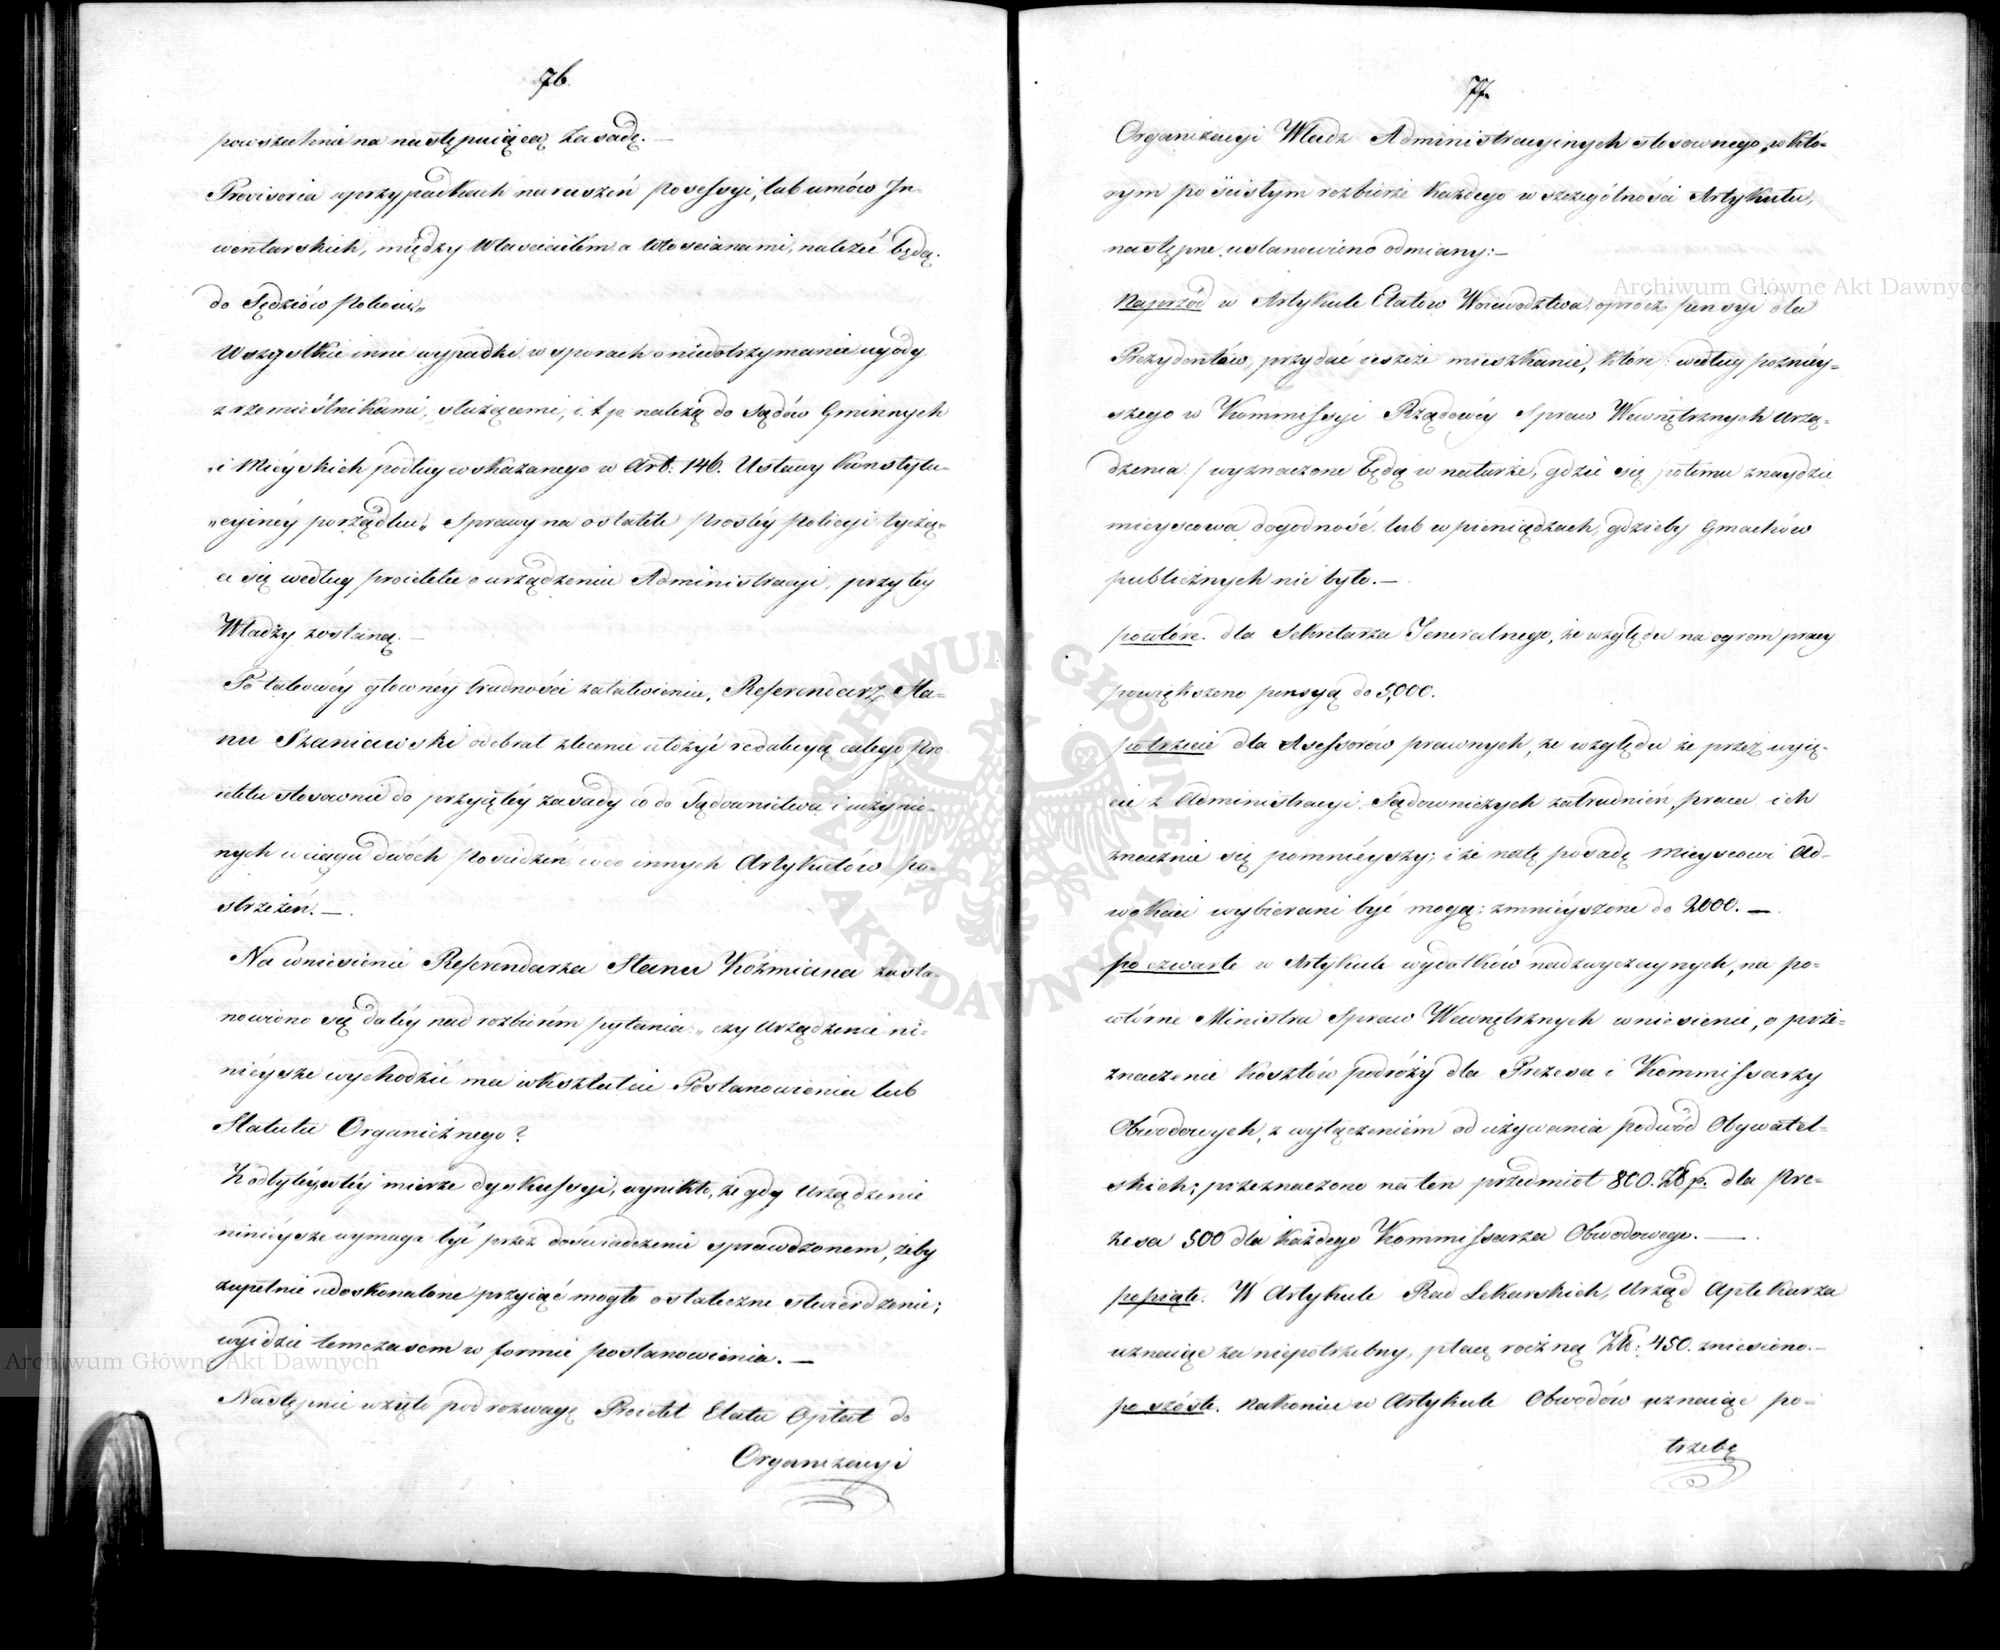 76.
powszechnie na następuiącą zasadę. —
Provisoria w przypadkach naruszeń possessyi, lub umów In-
wentarskich, między Właścicielem a włościanami, należeć będą
do Sędziów Pokoiu„
Wszystkie inne wypadki w sporach o niedotrzymanie ugody
z rzemieślnikami, służącemi, i. t. p. należą do Sądów Gminnych
„i Mieyskich podług wskazanego w Art. 146. Ustawy Konstytu-
„cyinéy porządku„ Sprawy na ostatek prostéy policyi tyczą-
ce się według proiektu o urządzeniu Administracyi, przy téy
Władzy zostaną. —
Po takowéy głównéy trudności załatwieniu, Referendarz Sta-
nu Szaniawski odebrał zlecenie ułożyć redakcyą całego pro
iektu stosownie do przyiętéy zasady co do Sądownictwa i uczynio-
nych w ciągu dwóch posiedzeń w co innych Artykułów po-
strzeżeń. —.
Na wniesienie Referendarza Stanu Koźmiana zasta-
nowiono się daléy nad rozbiorém pytania: „czy Urządzenie ni-
nieysze wychodzić ma w kształcie Postanowienia lub
Statutu Organicznego?
Z odbytéy w téy mierze dyskussyi, wynikło, że gdy Urządzenie
ninieysze wymaga być przez doświadczenie sprawdzonem, żeby
zupełnie udoskonalone przyiąć mogło ostateczne stwierdzenie;
wyidzie tymczasem w formie postanowienia. —
Następnie wzięto pod rozwagę Proiekt Etatu Opłat do
Organizacyi
77.
Organizacyi Władz Administracyinych stosownego, w któ-
rym po ścisłym rozbiorze każdego w szczególności Artykułu,
następne ustanowiono odmiany: —
Naprzód w Artykule Etatów Woiewództwa, oprócz pensyi dla
Prezydentów, przydać ieszcze mieszkanie, które / według poźniéy-
szego w Kommissyi Rządowéy Spraw Wewnętrznych urzą-
dzenia / wyznaczone będą w naturze, gdzie się potemu znaydzie
mieyscowa dogodność, lub w pieniądzach, gdzieby Gmachów
publicznych nie było. —
powtóre. dla Sekretarza Jeneralnego, ze względu na ogrom pracy
powiększono pensyą do 5,000.
potrzecie dla Assessorów prawnych, ze względu że przez wyię-
cie z Administracyi Sądowniczych zatrudnień, praca ich
znacznie się pomnieyszy; i że na tę posadę Mieyscowi Ad-
wokaci wybierani być mogą; zmnieyszone do 2000. —
po czwarte w Artykule wydatków nadzwyczaynych, na po-
wtórne Ministra Spraw Wewnętrznych wniesienie, o prze-
znaczenie kosztów podróży dla Prezesa i Kommissarzy
Obwodowych, z wyłączeniém od używania podwód Obywatel-
skich; przeznaczono na ten przedmiot 800. Złp. dla Pre-
zesa 500 dla każdego Kommissarza Obwodowego. —
po piąte. W Artykule Rad Lekarskich, Urząd Aptekarza
uznaiąc za niepotrzebny, płacę roczną Zł: 450. zniesiono. —
po szóste. Nakoniec w Artykule Obwodów uznaiąc po-
trzebę
Archiwum Główne Akt Dawnych
Archiwum Główne Akt Dawnych
ARCHIWUM GŁÓWNE AKT DAWNYCH